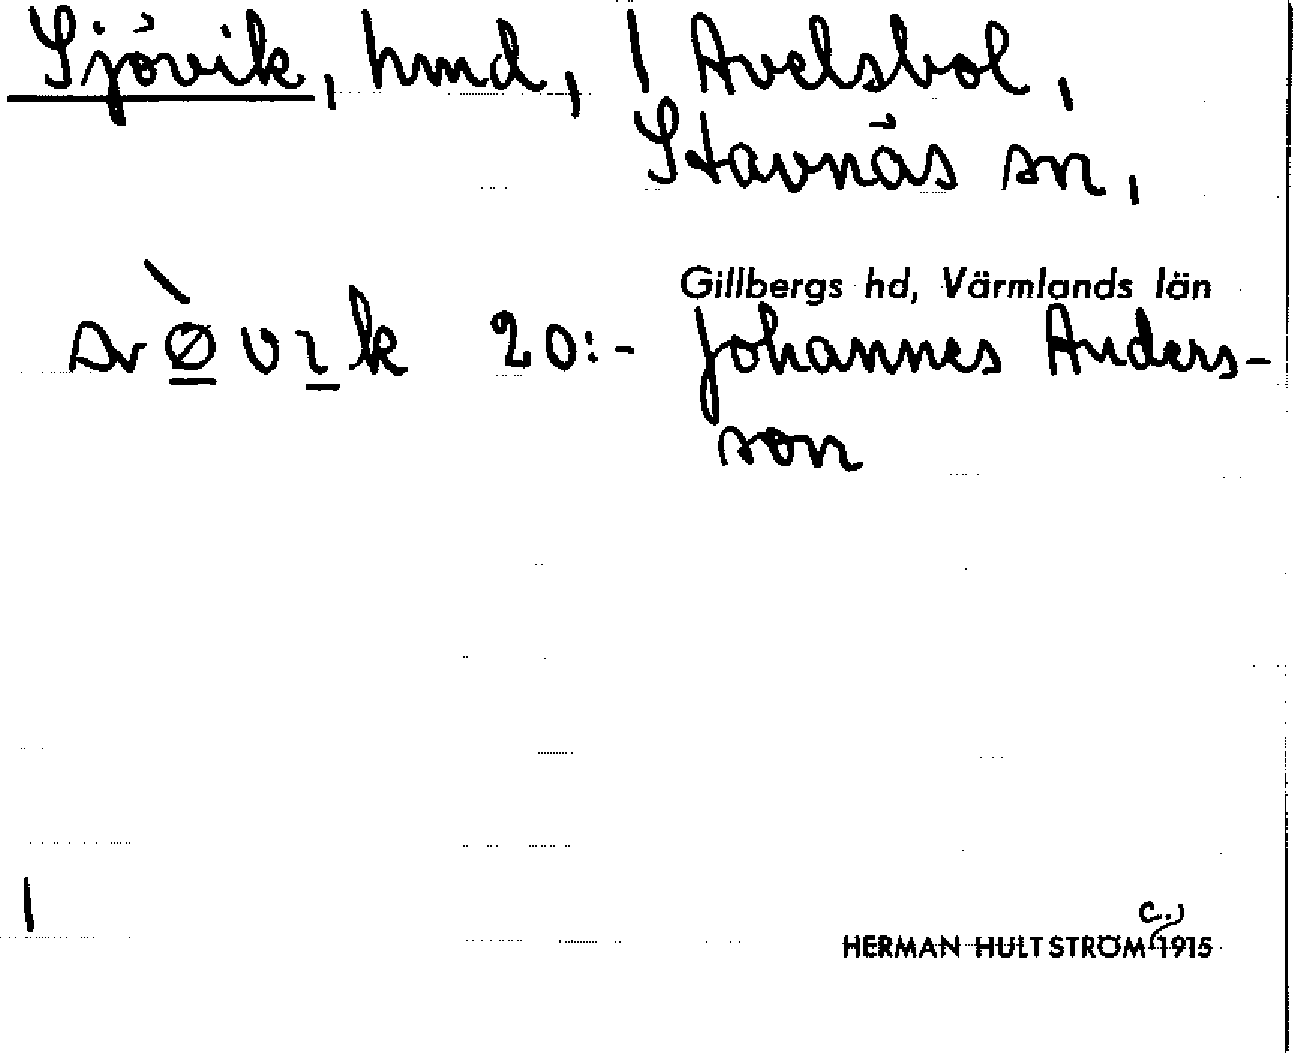 Sjövik, hmd, 1 Avelsbol,
Stavnäs sn,
Gillbergs hd, Värmlands län
20:- Johannes Anders-
son
1
c.,
HERMAN HULTSTRÖM 1915